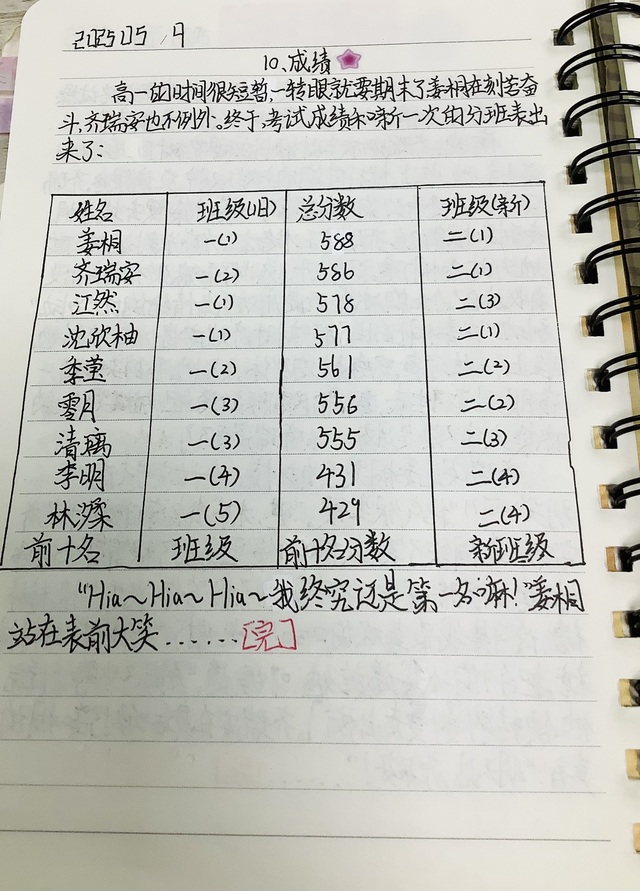 202505 19
10、成绩
高一的时间很短暂,一转眼就要期末了姜桐在刻苦奋
斗,齐瑞安也不例外。终于,考试成绩和新一次的分班表出
来了:
姓名 班级(旧) 总分数 班级(新)
姜桐 一(1) 588 二(1)
齐瑞安 一(2) 586 二(1)
江然 一(1) 578 二(3)
沈欣柚 一(1) 577 二(1)
季莹 一(2) 561 二(2)
零月 一(3) 556 二(2)
清璃 一(3) 555 二(3)
李明 一(4) 431 二(4)
林柔 一(5) 429 二(4)
前十名 班级 前十名分数 新班级
"Hia~Hia~Hia~我终究还是第一名嘛!"姜桐
站在表前大笑......[完]